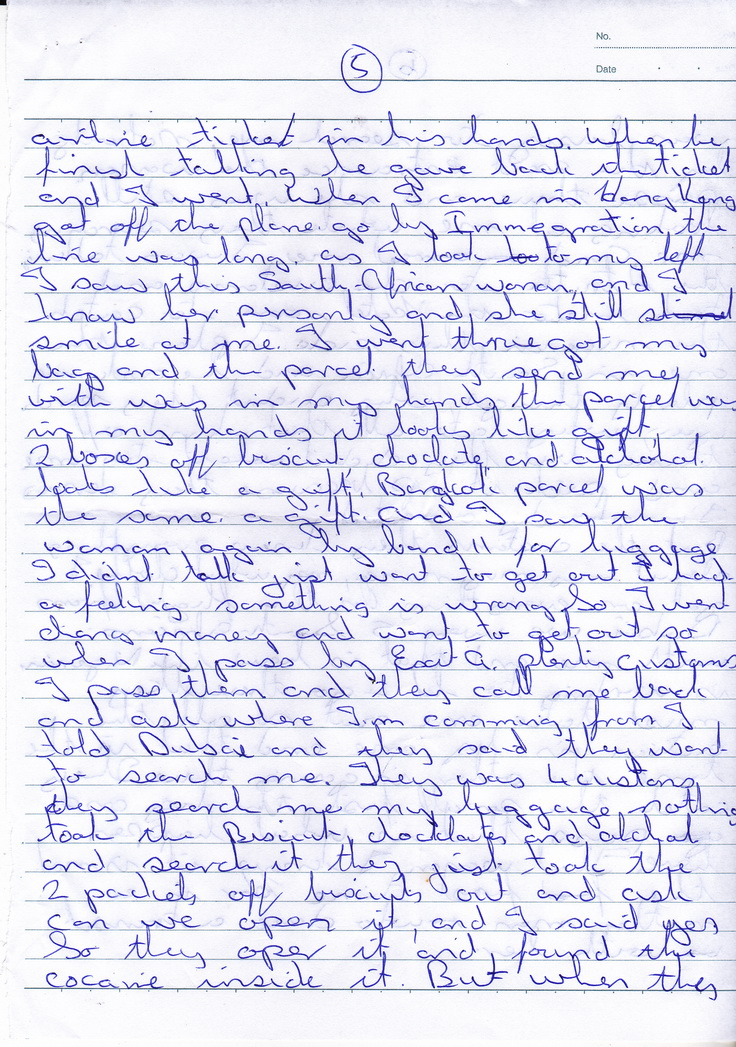 No.
5
Date
airline ticket in his hands. When he
finish talking he gave back the ticket
and I went. When I came in Hong Kong
got off the plane. go by Immegration, the
line was long. as I look to my left
I saw this South-African woman, and I
know her personly and she still
smile at me. I went threw got my
bag and the parcel they send me
with was in my hands the parcel was
in my hands it looks like gift
2 boxes off biscuit choclate and alchohol.
looks like a gift. Bangkok parcel was
the same. a gift. and I saw the
woman again by band 11 for luggage
I didnt talk just want to get out I had
a feeling something is wrong. So I went
chang money and want to get out so
when I pass by Exit A. plenty customs
I pass them and they call me back
and ask where I'm comming from I
told Dubai and they said they want
to search me. They was 4 customs
they search me my luggage nothing
took the Biscuit, chocklates and alchol
and search it they just took the
2 packets off biscuits out and ask
can we open it, and I said yes
So they open it and found the
cocaine inside it. But when they